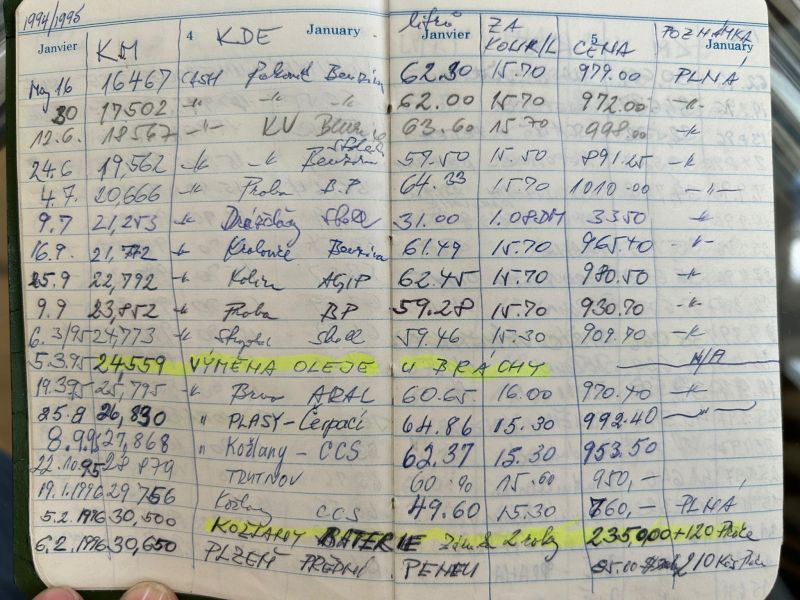 1994/1995
Janvier KM 4 KDE January litrů Janvier ZA KOUR/L 5 CENA POZNÁMKA January
May 16 16467 CASH Benzina 62.30 15.70 979.00 PLNÁ
30 17502 -"- -"- -"- 62.00 15.70 972.00 -"-
12.6. 18567 -"- KV 63.60 15.70 998.00 -"-
24.6 19,562 -"- -"- Benzina 57.50 15.50 891.25 -"-
4.7. 20,666 -"- Praha B.P 64.33 15.70 1010.00 -"-
9.7 21,253 -"- Shell 31.00 1.08DM 33.50 -"-
16.9. 21,772 -"- Kralovice Benzina 61.49 15.70 965.40 -"-
25.9 22,792 -"- Kolín AGIP 62.45 15.70 980.50 -"-
9.9 23,852 -"- Praha BP 59.28 15.70 930.70 -"-
6.3/95 24,773 -"- Shell 59.46 15.30 909.70 -"-
5.3.95 24559 VÝMĚNA OLEJE U BRÁCHY N/A
19.3.95 25,795 -"- Brno ARAL 60.65 16.00 970.40 -"-
25.8 26,830 " PLASY-Čerpací 64.86 15.30 992.40 -"-
8.9.95 27,868 " Kožlany - CCS 62.37 15.30 953.50
22.10.95 28 879 TRUTNOV 60.90 15.60 950,-
19.1.1996 29.756 Kožlany CCS 49.60 15.30 760,- PLNÁ
5.2.1996 30,500 KOŽLANY BATERIE 2 roky 2350.00+120 Práce
6.2.1996 30,650 PLZEŇ PŘEDNÍ 210 Kčs Práce